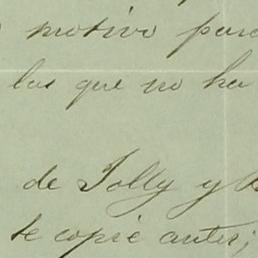 motivo para
las que no ha
de Jolly y
te copié antes;